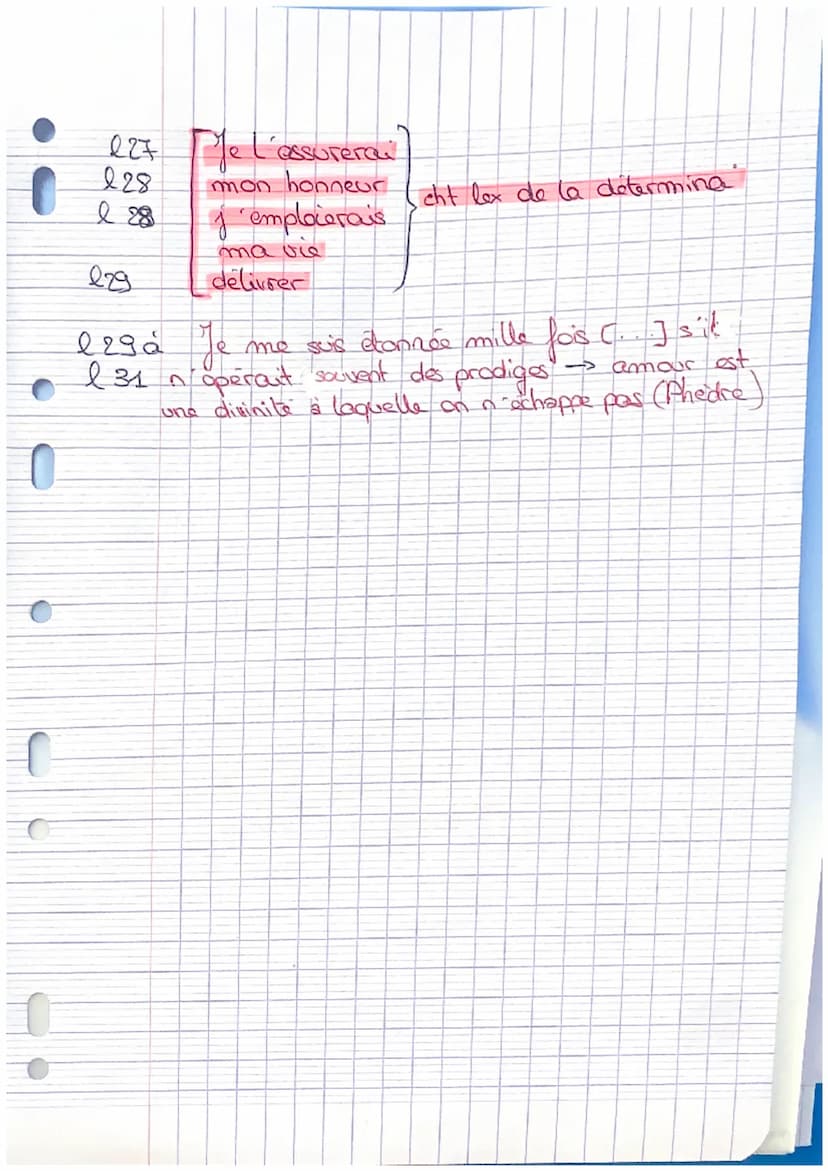 l 27 Je l'assurerai
l 28 mon honneur cht lex de la détermina°
l 28 j'emploierais
ma vie
l 29 délivrer
l 29 à Je me suis étonnée mille fois [...] s'il
l 31 n'opérait souvent des prodiges → amour est
une divinité à laquelle on n'échappe pas (Phèdre)